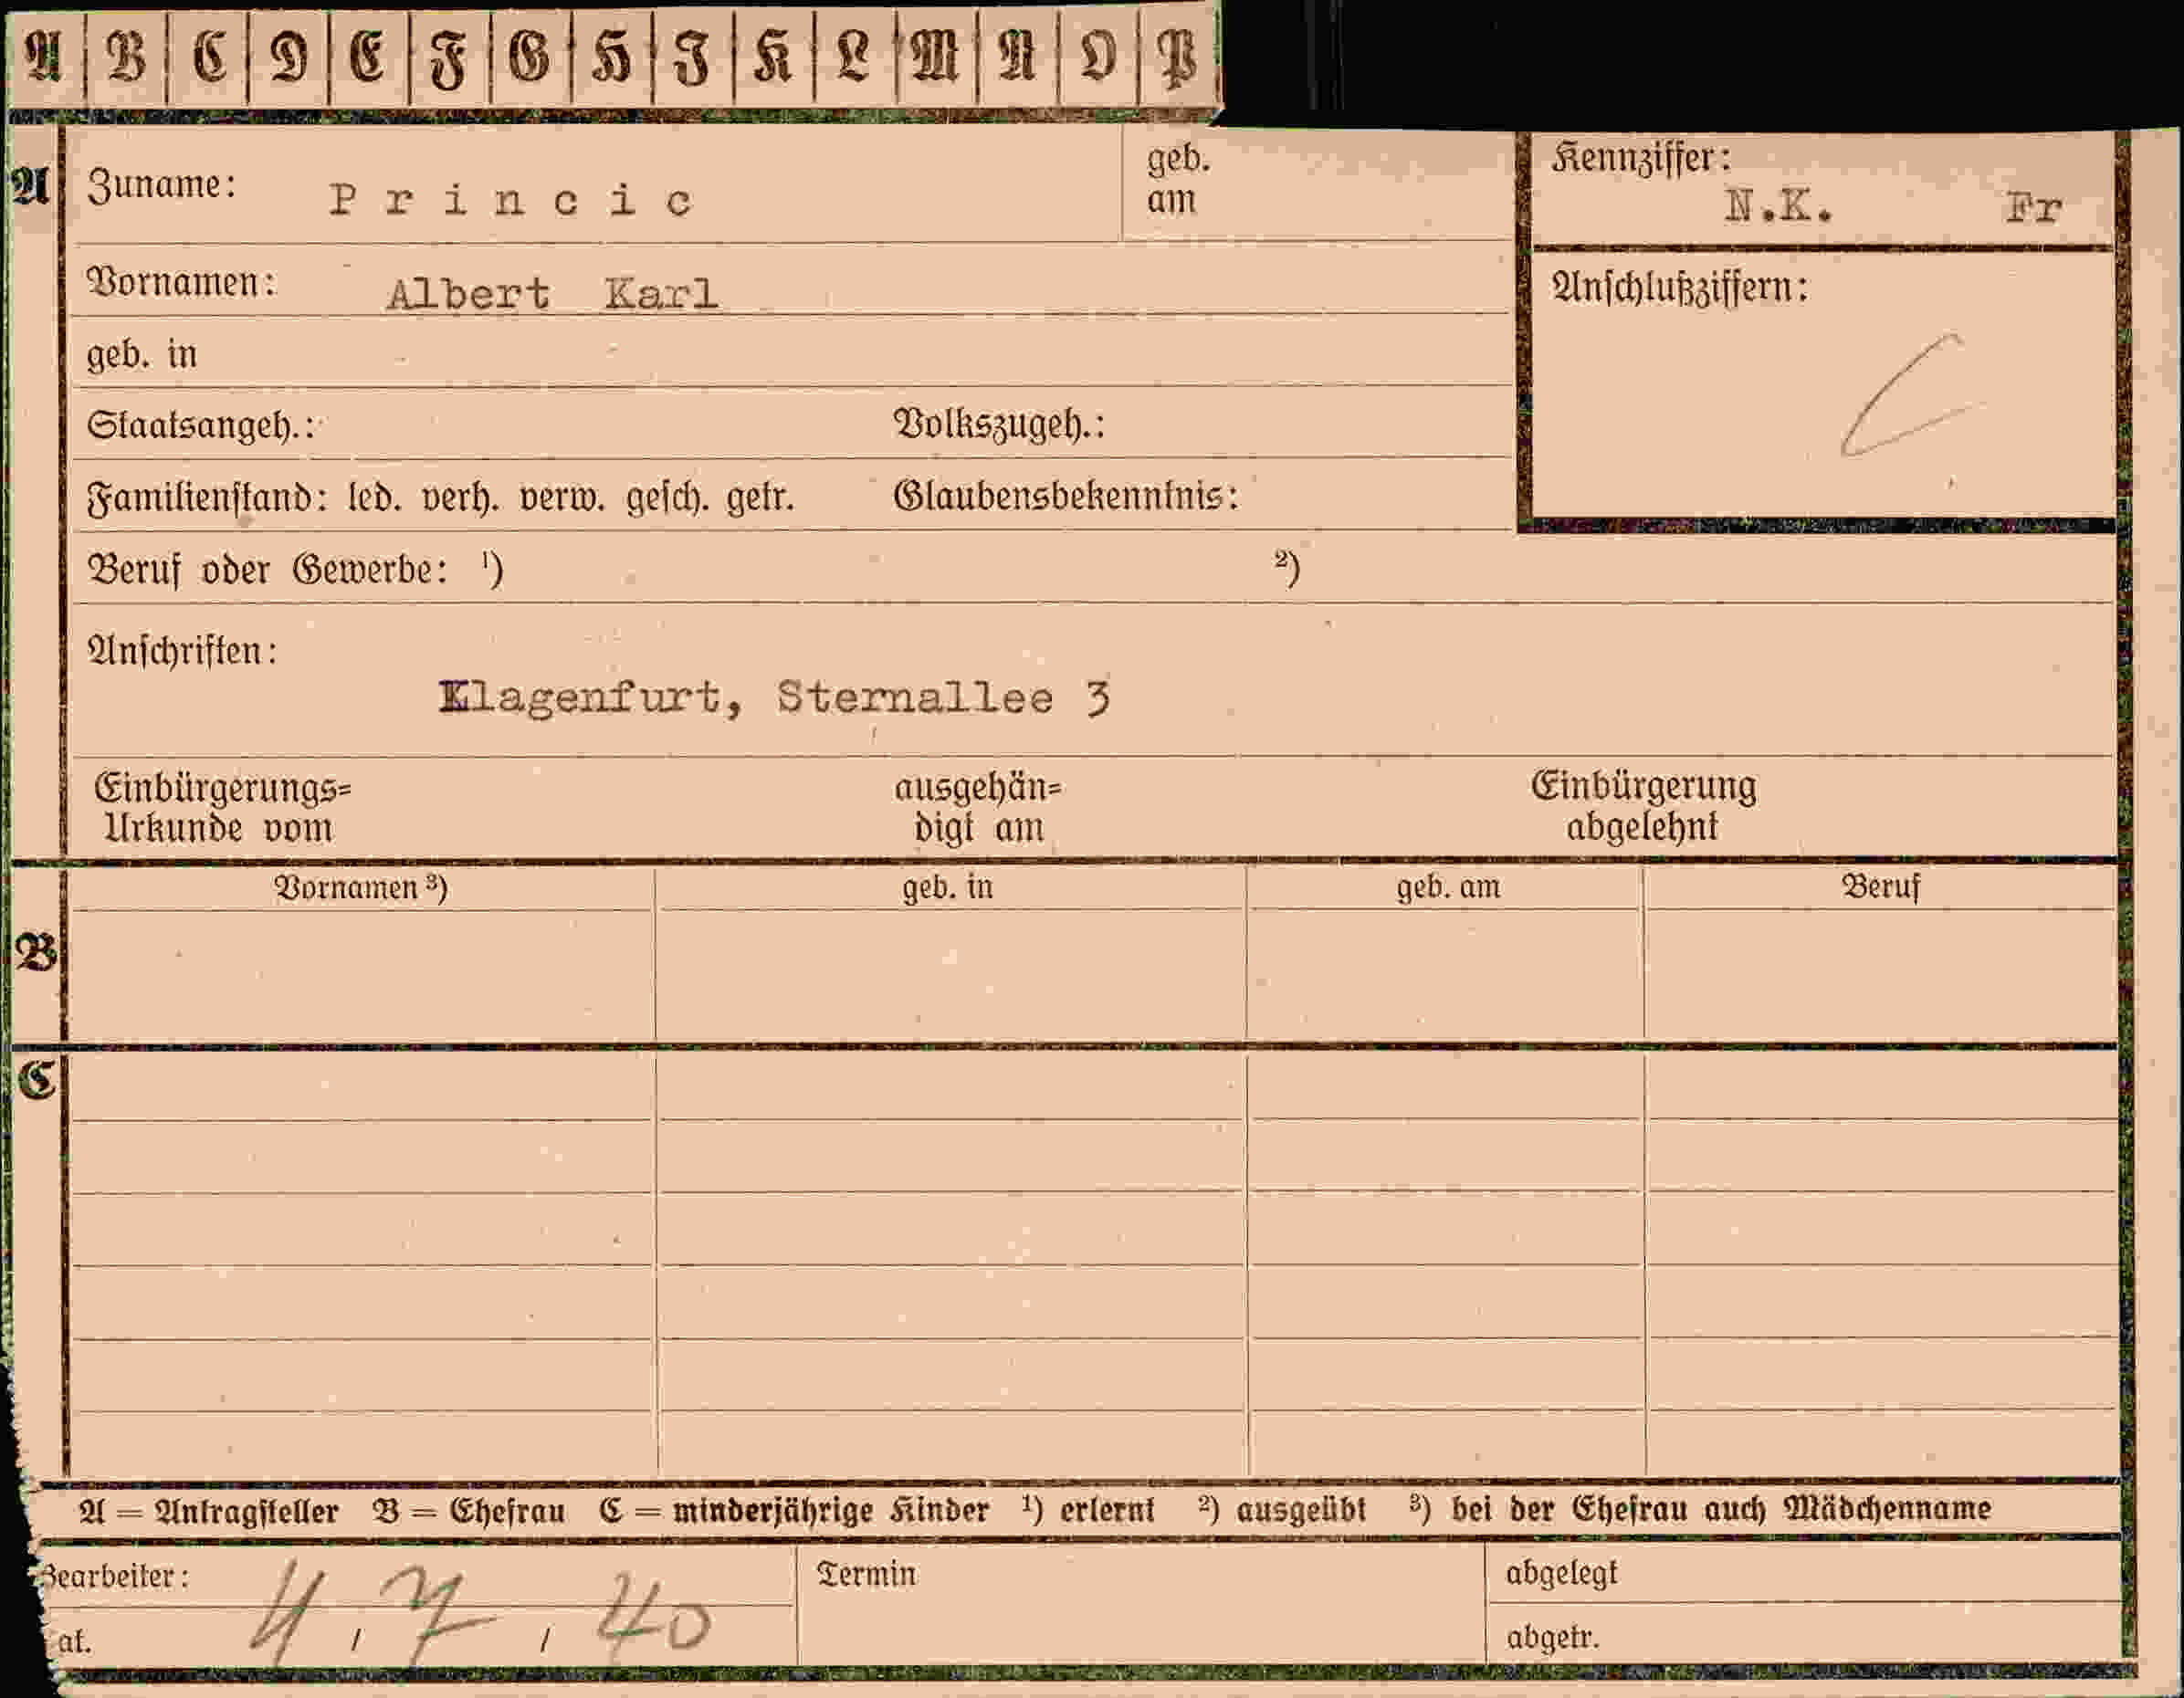 A B C D E F G H I K L M N O P
A Zuname: Princic geb. am
Kennziffer: N.K. Fr
Vornamen: Albert Karl
Anschlußziffern:
geb. in
Staatsangeh.: Volkszugeh.:
Familienstand: led. verh. verw. gesch. getr. Glaubensbekenntnis:
Beruf oder Gewerbe: ¹) ²)
Anschriften:
Klagenfurt, Sternallee 3
Einbürgerungs= ausgehän= Einbürgerung
Urkunde vom digt am abgelehnt
Vornamen ³) geb. in geb. am Beruf
B
C
A = Antragsteller B = Ehefrau C = minderjährige Kinder ¹) erlernt ²) ausgeübt ³) bei der Ehefrau auch Mädchenname
Bearbeiter: Termin abgelegt
at. 4, 7, 40 abgetr.